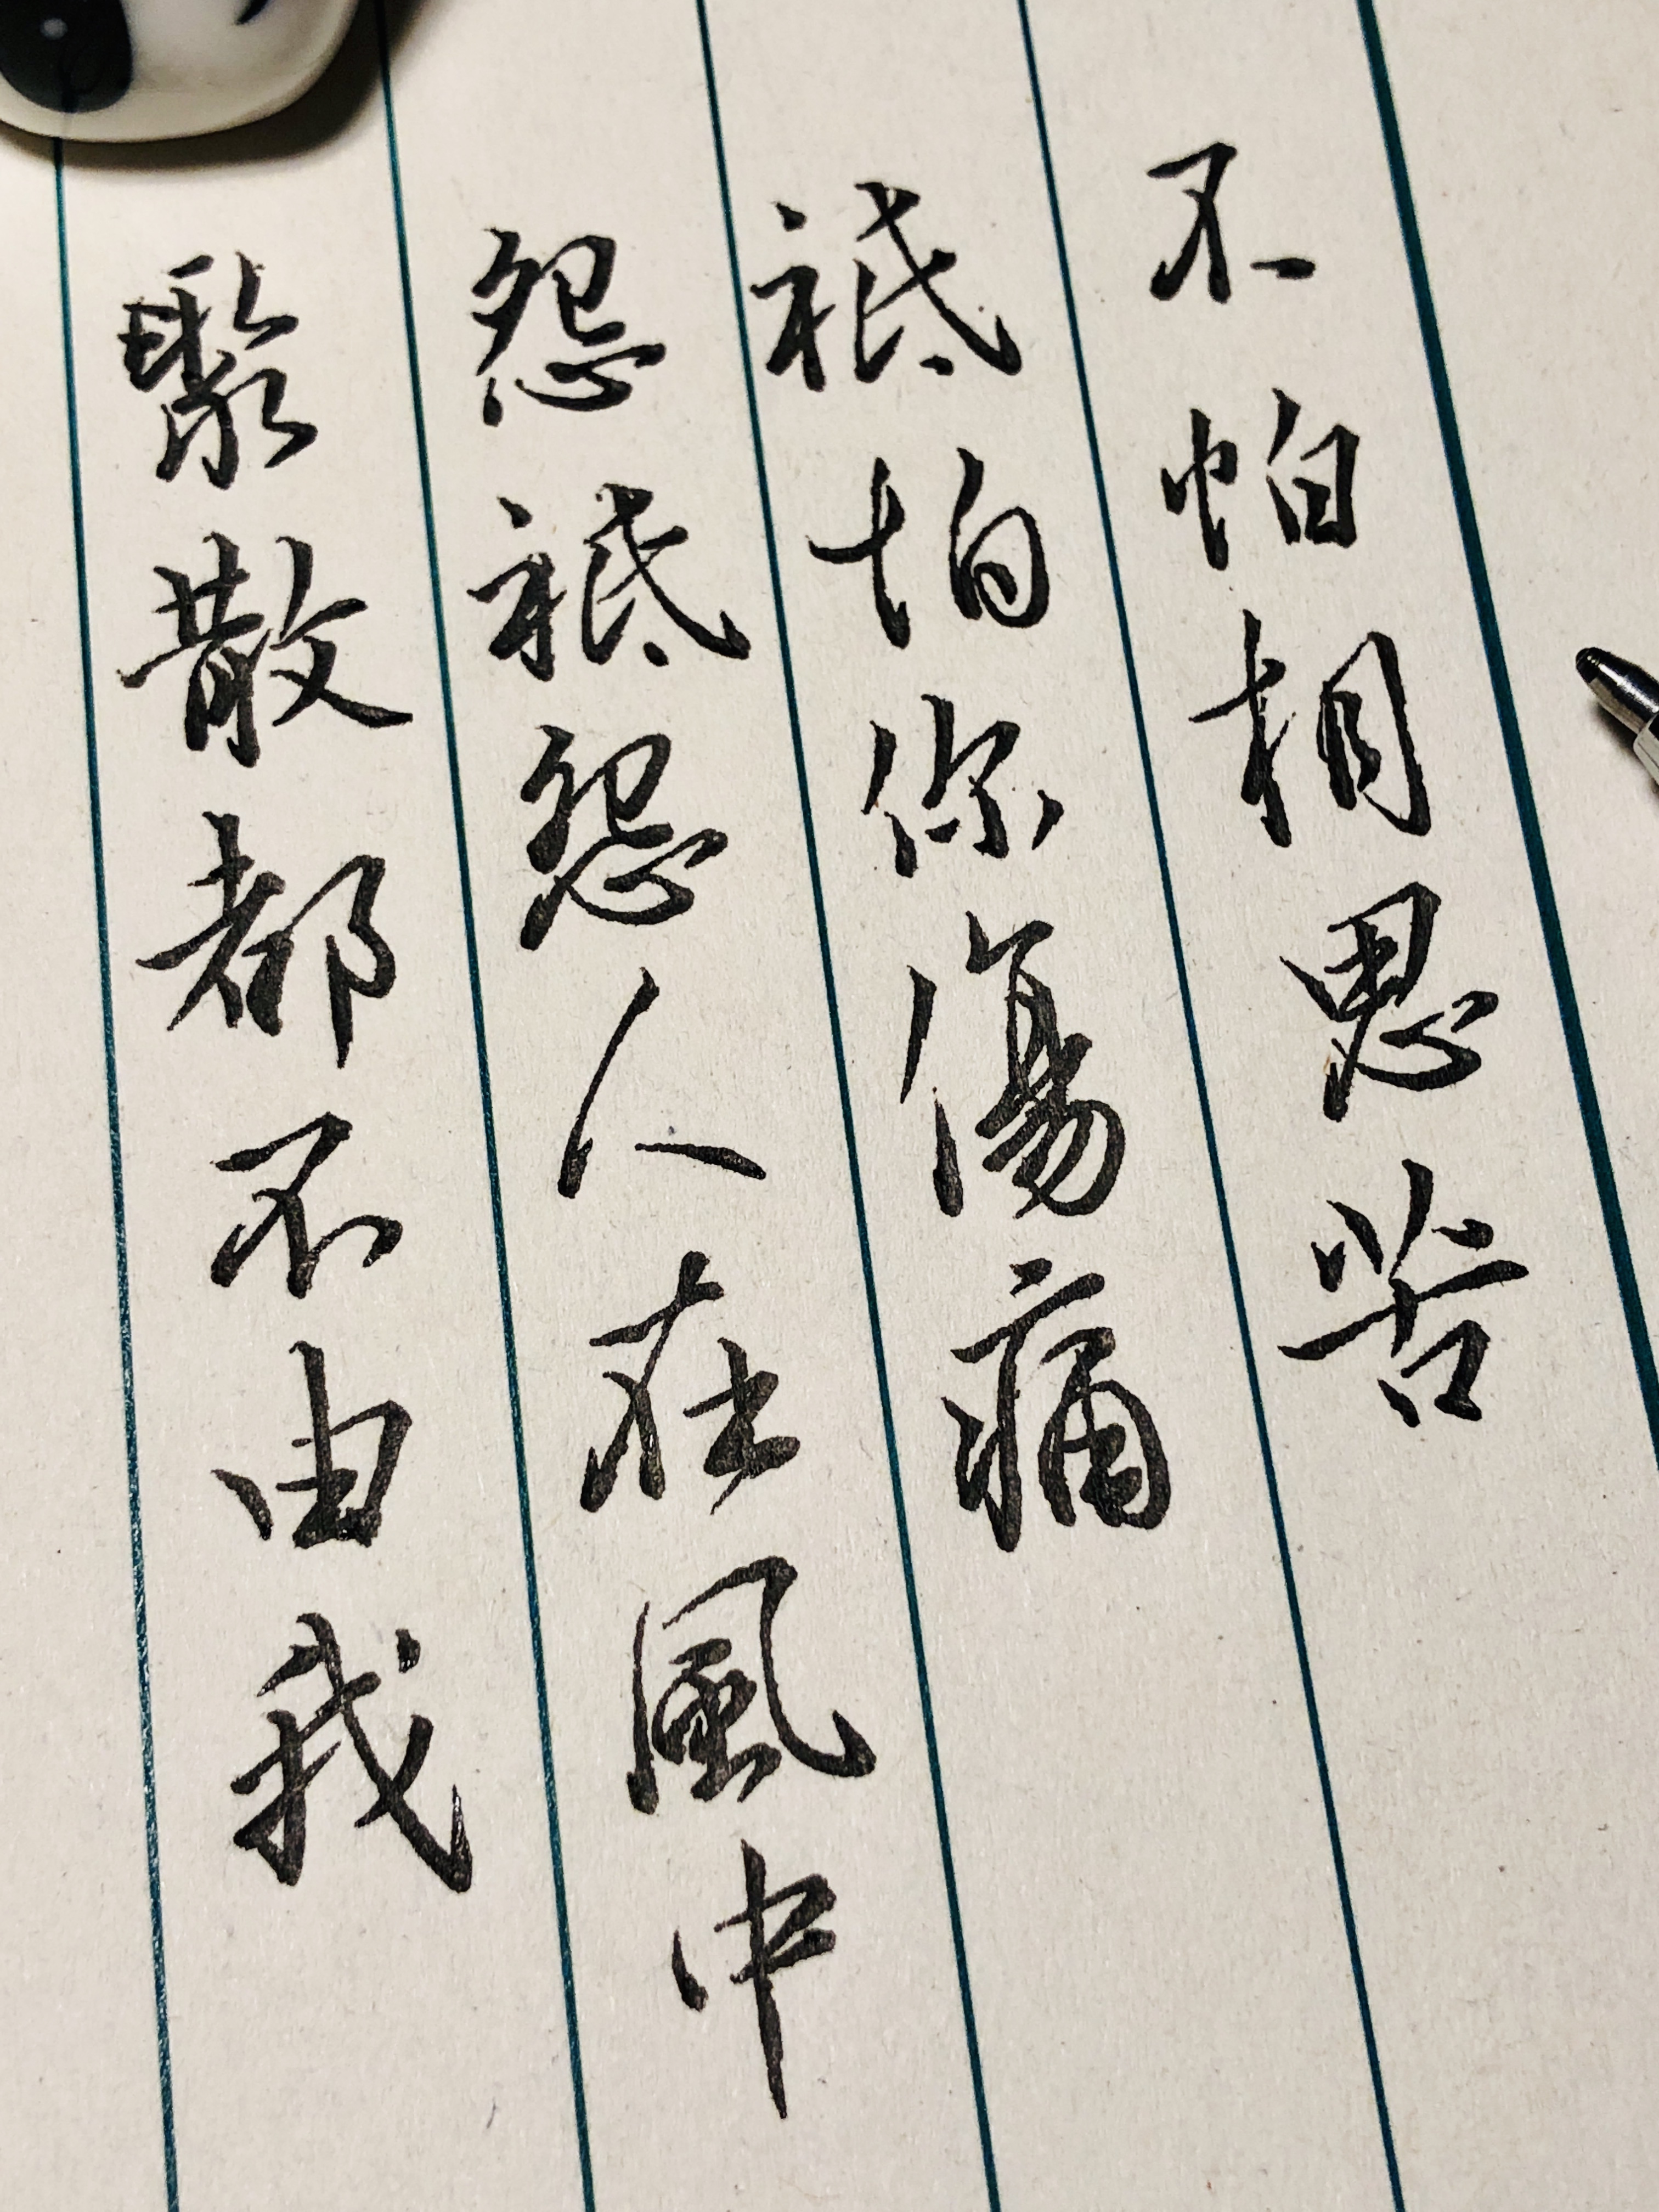 不怕相思苦
祗怕你傷痛
怨祗怨人在風中
聚散都不由我